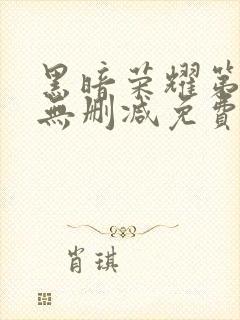 黑暗荣耀第
無删减免費
肖琪